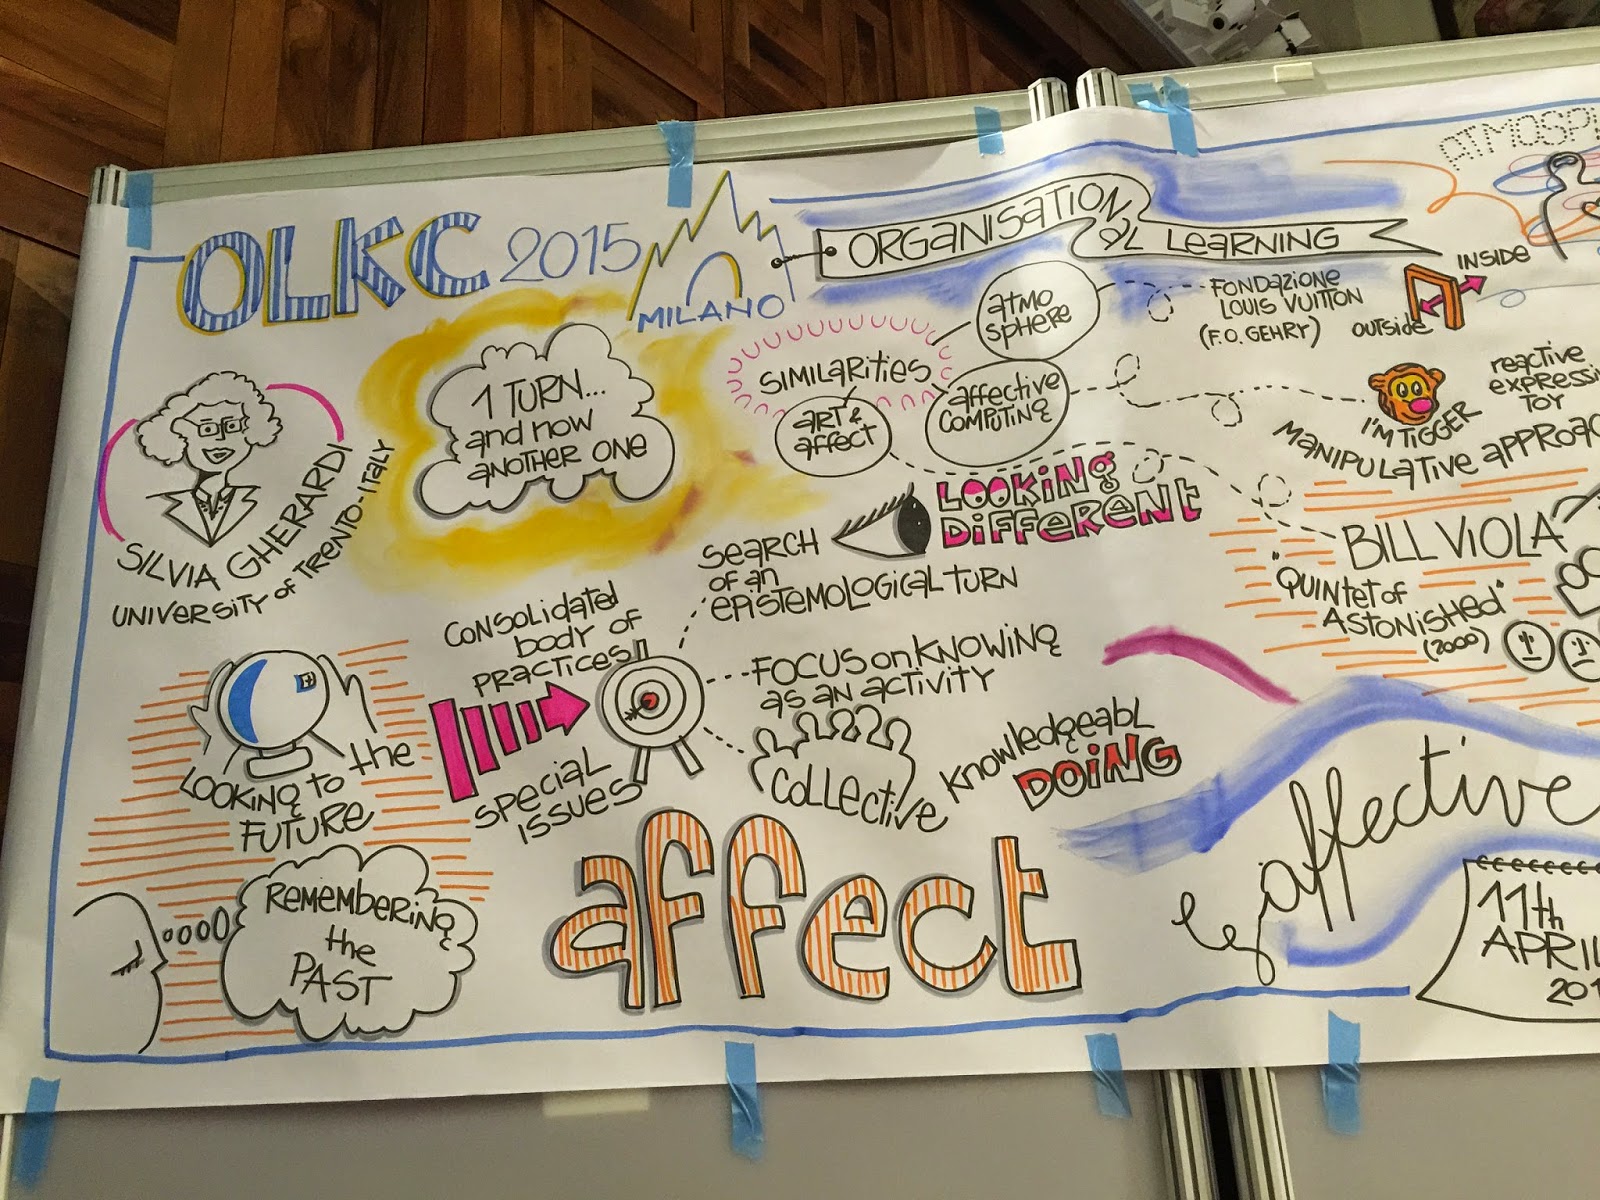 OLKC 2015
MILANO
ORGANISATION
AL LEARNING
SILVIA GHERARDI
UNIVERSITY of TRENTO-ITALY
1 TURN...
and now
ANOTHER ONE
SIMILARITIES
atmo
sphere
ART &
affect
affective
COMPUTING
FONDAZIONE
LOUIS VUITTON
(F.O. GEHRY)
INSIDE
OUTSIDE
I'M TIGGER
reactive
expressi
TOY
MANIPULATIVE APPROAC
LOOKING
DIFFERENT
SEARCH
of an
EPISTEMOLOGICAL TURN
BILL VIOLA
"QUINTET of
ASTONISHED"
(2000)
CONSOLIDATED
body of
PRACTICES
SPECIAL
ISSUES
FOCUS on KNOWING
as an activity
COLLECTIVE
KNOWLEDGEABL
DOING
LOOKING to the
FUTURE
REMEMBERING
the
PAST
affect
affective
11th
APRIL
201
ATMOSP